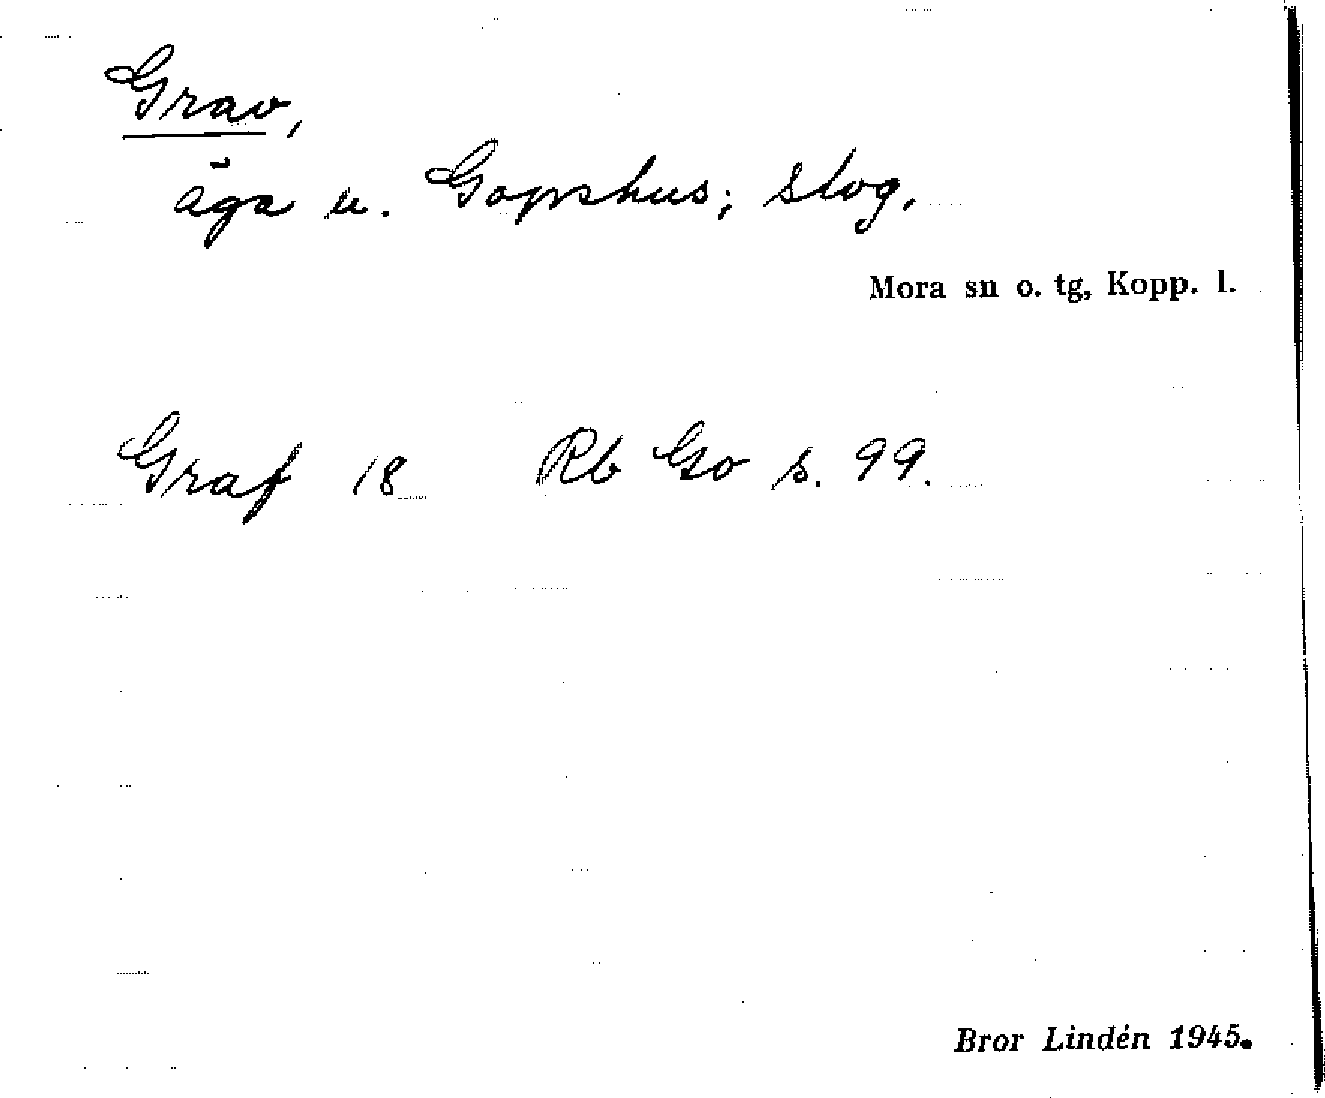 Grav,
äga u. Gopshus; slog.
Mora sn o. tg, Kopp. l.
Graf 18 Rb Go s. 99.
Bror Lindén 1945.